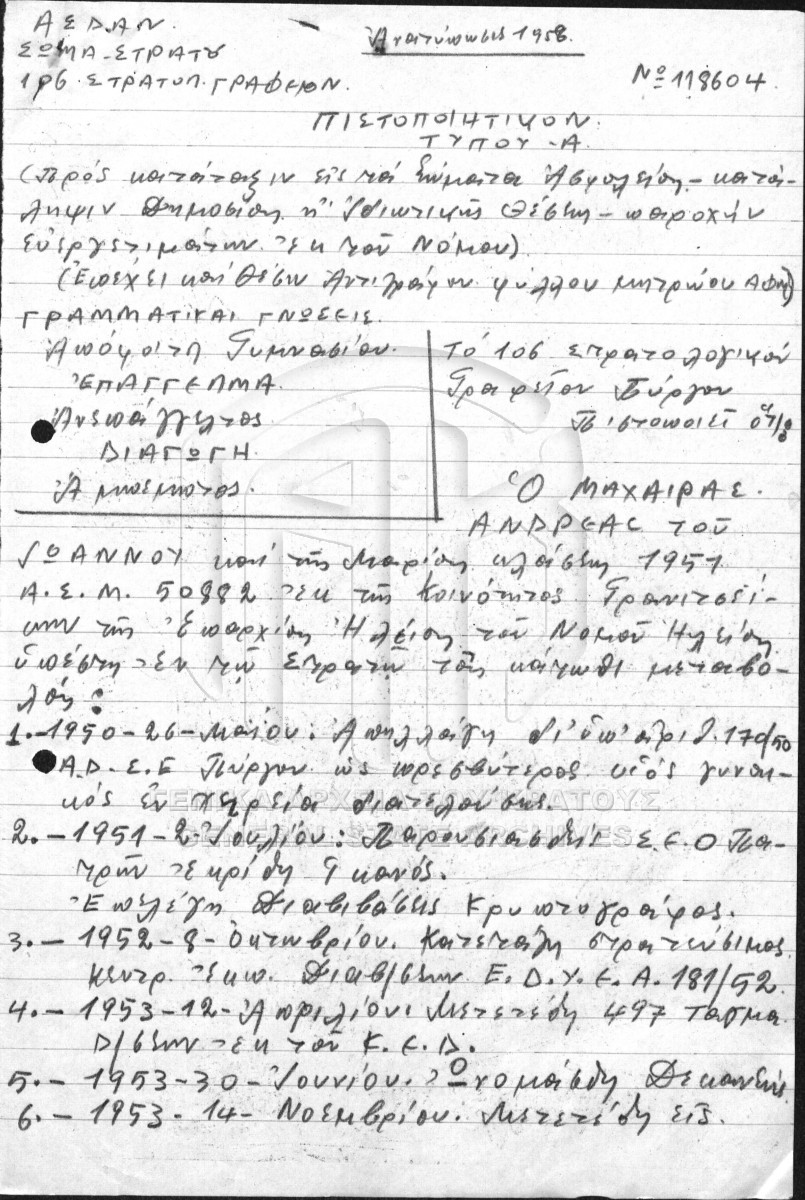 Α Σ Δ Α Ν
ΣΩΜΑ-ΣΤΡΑΤΟΥ
106 ΣΤΡΑΤΟΛ. ΓΡΑΦΕΙΟΝ.
Ἀνατύπωσις 1958.
Νο 118604
ΠΙΣΤΟΠΟΙΗΤΙΚΟΝ.
ΤΥΠΟΥ-Α
(Πρός κατάταξιν εἰς τά Σώματα Ἀσφαλείας-κατά-
ληψιν Δημοσίας ἤ Ἰδιωτικῆς Θέσεως-παροχήν
εὐεργετημάτων ἐκ τοῦ Νόμου)
(Ἐπέχει καί θέσιν Ἀντιγράφου φύλλου μητρώου
ΓΡΑΜΜΑΤΙΚΑΙ ΓΝΩΣΕΙΣ.
Ἀπόφοιτη Γυμνασίου.
ἘΠΑΓΓΕΛΜΑ
Ἀνεπάγγελτος
ΔΙΑΓΩΓΗ
Ἄμεμπτος.
Τό 106 Στρατολογικόν
Γραφεῖον Πύργου
Πιστοποιεῖ ὅτι
Ὁ ΜΑΧΑΙΡΑΣ.
ΑΝΔΡΕΑΣ τοῦ
ἸΩΑΝΝΟΥ καί τῆς Μαρίας κλάσεως 1951
Α.Σ.Μ. 50882 ἐκ τῆς Κοινότητος Γρανιτσεΐ-
κων τῆς Ἐπαρχίας Ἠλείας τοῦ Νομοῦ Ἠλείας
ὑπέστη ἐν τῷ Στρατῷ τάς κάτωθι μεταβο-
λάς:
1.-1950-26-Μαΐου: Ἀπηλλάγη δι' ὑπ' ἀριθ. 170/50
Α.Δ.Σ.Ε Πύργου ὡς πρεσβύτερος υἱός γυναι-
κός ἐν χηρεία διατελούσης.
2.-1951-2 Ἰουλίου: Παρουσιασθείς Σ.Ε.Ο Πα-
τρῶν ἐκρίθη Ἱκανός.
Ἐπελέγη Διαβιβάσεις Κρυπτογράφος.
3.-1952-8-Ὀκτωβρίου. Κατετάγη στρατεύσιμος
Κεντρ. Ἐκπ. Διαβ/σεων Ε.Δ.Υ.Ε.Α. 181/52
4.-1953-12-Ἀπριλίου Μετετέθη 497 Ταγμα
Δ/σεων ἐκ τοῦ Κ.Ε.Δ.
5.-1953-30-Ἰουνίου. Ὠνομάσθη Δεκανεύς
6.-1953-14-Νοεμβρίου. Μετετέθη εἰς.
ΓΕΝΙΚΑ ΑΡΧΕΙΑ ΤΟΥ ΚΡΑΤΟΥΣ
GENERAL STATE ARCHIVES